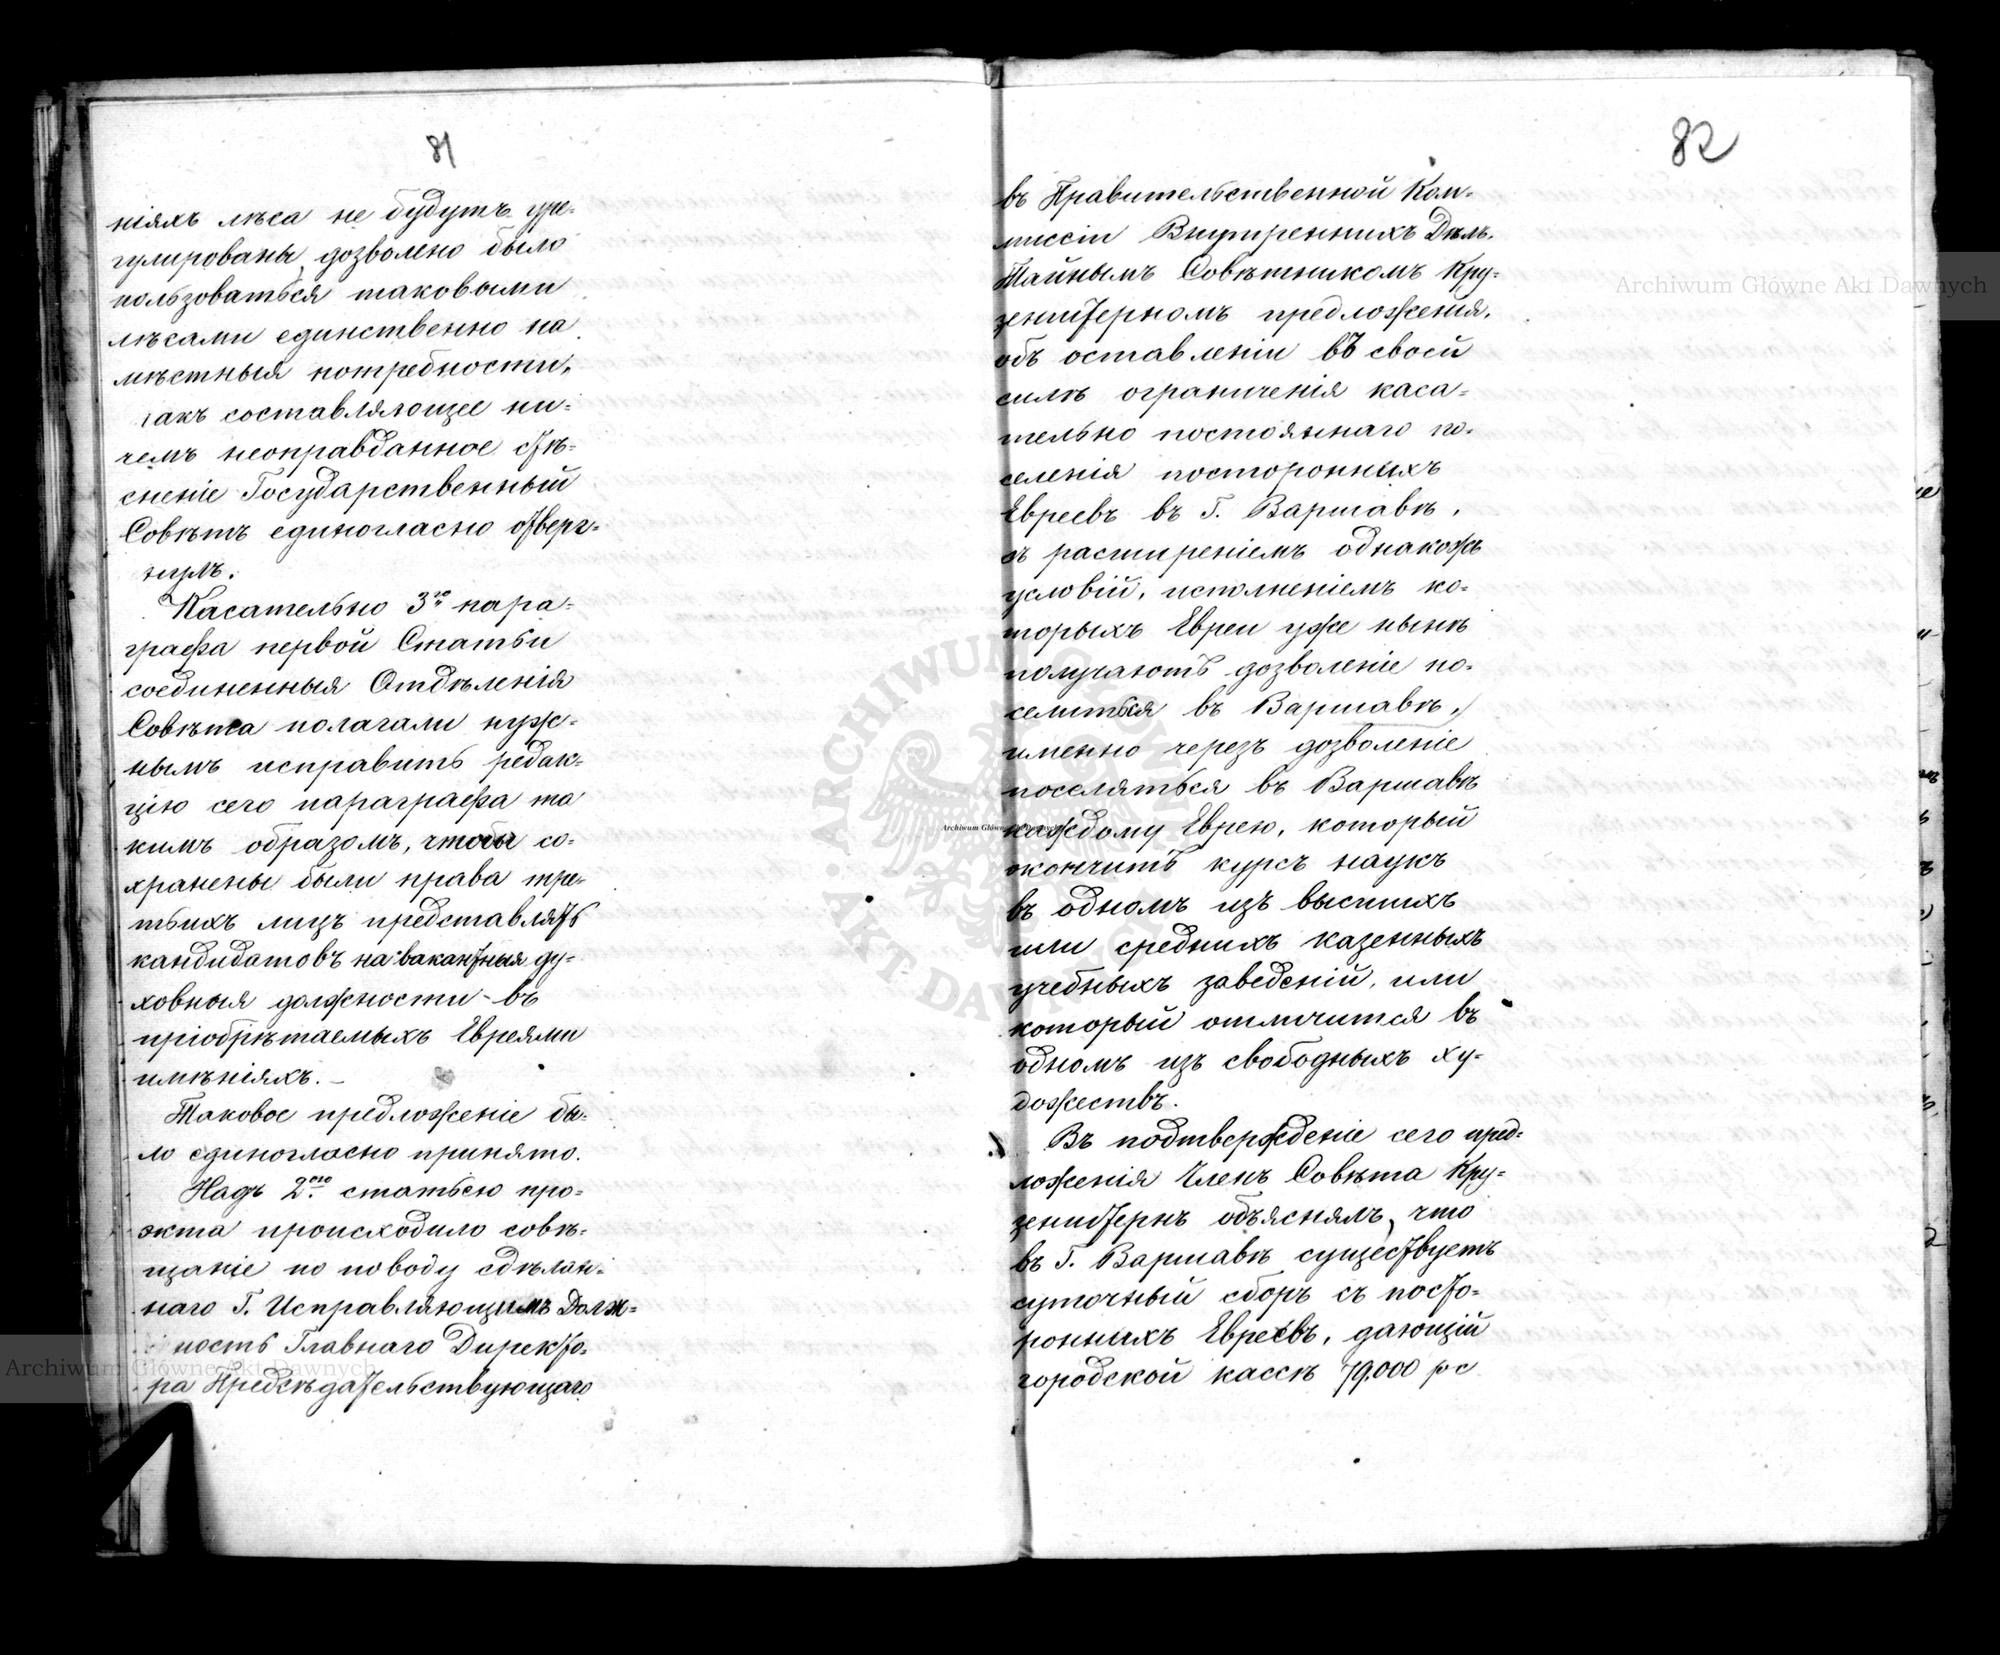 81
ніяхъ лѣса не будутъ уре-
гулированы, дозволено было
пользоваться таковыми
лѣсами единственно на
мѣстныя потребности,
какъ составляющее ни-
чемъ неоправданное стѣ-
сненіе Государственный
Совѣтъ единогласно отверг-
нулъ.
Касательно 3го пара-
графа первой Статьи
соединенныя Отдѣленія
Совѣта полагали нуж-
нымъ исправить редак-
цію сего параграфа та
кимъ образомъ, чтобы со-
хранены были права тре-
тьихъ лицъ представлять
кандидатовъ на вакантныя ду-
ховныя должности въ
пріобрѣтаемыхъ Евреями
имѣніяхъ. —
Таковое предложеніе бы-
ло единогласно принято.
Надъ 2ою статьею про-
экта происходило совѣ-
щаніе по поводу сдѣлан-
наго Г. Исправляющимъ Долж-
ность Главнаго Директо-
ра Предсѣдательствующаго
82
въ Правительственной Ком-
миссіи Внутреннихъ Дѣлъ.
Тайнымъ Совѣтникомъ Кру-
зенштерномъ предложенія,
объ оставленіи въ своей
силѣ ограниченія каса-
тельно постояннаго по-
селенія постороннихъ
Евреевъ въ Г. Варшавѣ,
съ расширеніемъ однакожъ
условій, исполненіемъ ко-
торыхъ Евреи уже нынѣ
получаютъ дозволеніе по-
селиться въ Варшавѣ,
именно черезъ дозволеніе
поселяться въ Варшавѣ
каждому Еврею, который
окончитъ курсъ наукъ
въ одномъ изъ высшихъ
или среднихъ казенныхъ
учебныхъ заведеній, или
который отличится въ
одномъ изъ свободныхъ ху-
дожествъ.
Въ подтвержденіе сего пред-
ложенія Членъ Совѣта Кру-
зенштернъ объяснялъ, что
въ Г. Варшавѣ существуетъ
суточный сборъ съ посто-
роннихъ Евреевъ, дающій
городской кассѣ 79.000 рс
Archiwum Główne Akt Dawnych
Archiwum Główne Akt Dawnych
Archiwum Główne Akt Dawnych